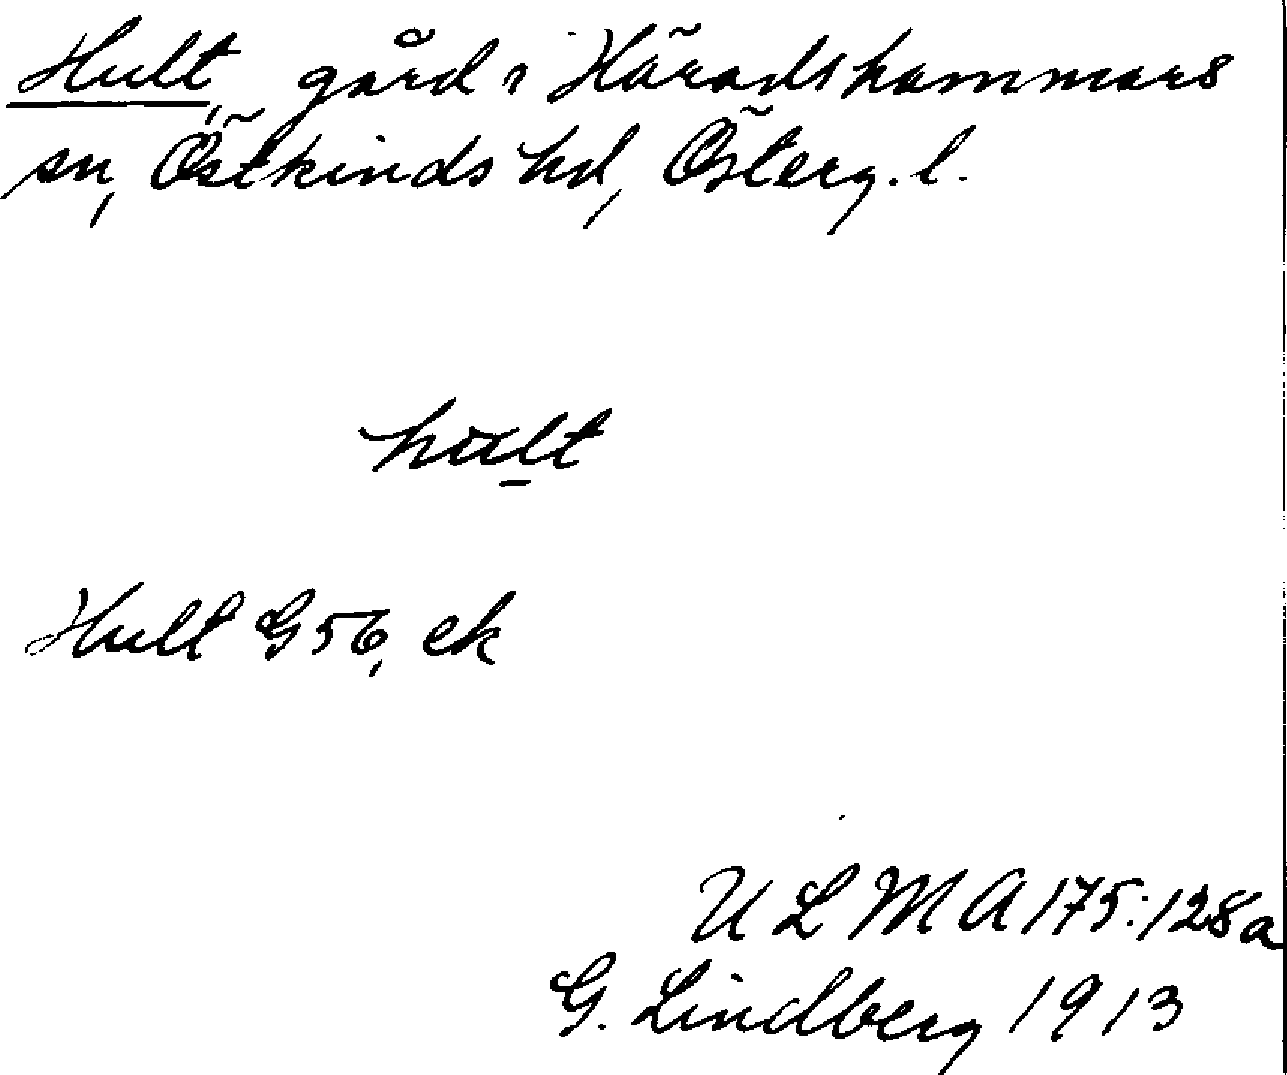 Hult, gård i Häradshammars
sn, Östkinds hd, Österg. l.
hult
Hult G 56, ek
U L M A 175:128a
G. Lindberg 1913